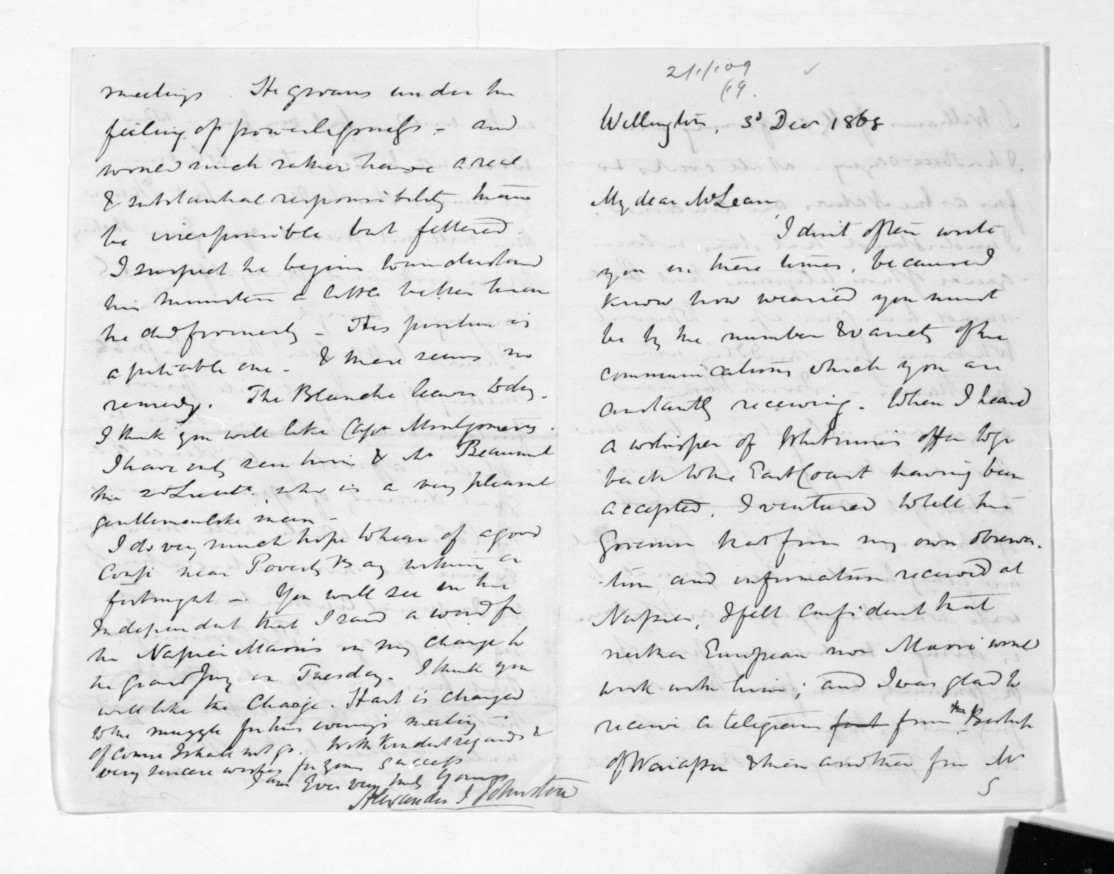 21/1/109
(19.
Wellington, 3d Decr 1868
My dear McLean,
I don't often write
you in these times, because I
know how wearied you must
be by the number & variety of the
communications which you are
constantly receiving. When I heard
a whisper of Whitmore's offer to go
back to the East Coast having been
accepted, I ventured to tell the
Governor that from my own observa-
tion and information received at
Napier, I felt confident that
neither European nor Maori would
work with him; and I was glad to
receive a telegram from the Bishop
of Waiapu & then another from Mr
S
meetings He groans under the
feeling of powerlessness - and
would much rather have a real
& substantial responsibility than
be irresponsible but fettered
I suspect he begins to understand
his Ministers a little better than
he did formerly - His position is
a pitiable one. & there seems no
remedy. The Blanche leaves today.
I think you will like Capt Montgomerie.
I have only seen him & Mr Beaumont
the 2d Lieut. who is a very pleasant
gentlemanlike man -
I do very much hope to hear of a good
near Poverty Bay within a
fortnight - You will see in the
Independent that I said a word for
the Napier Maoris in my charge to
the Grand Jury on Tuesday. I think you
will like the Charge. Hart is changed
to the muzzle for this evening's meeting -
Of course I shall not go. With kindest regards &
very sincere wishes for your success
I am Ever very truly yours
Alexander J Johnston